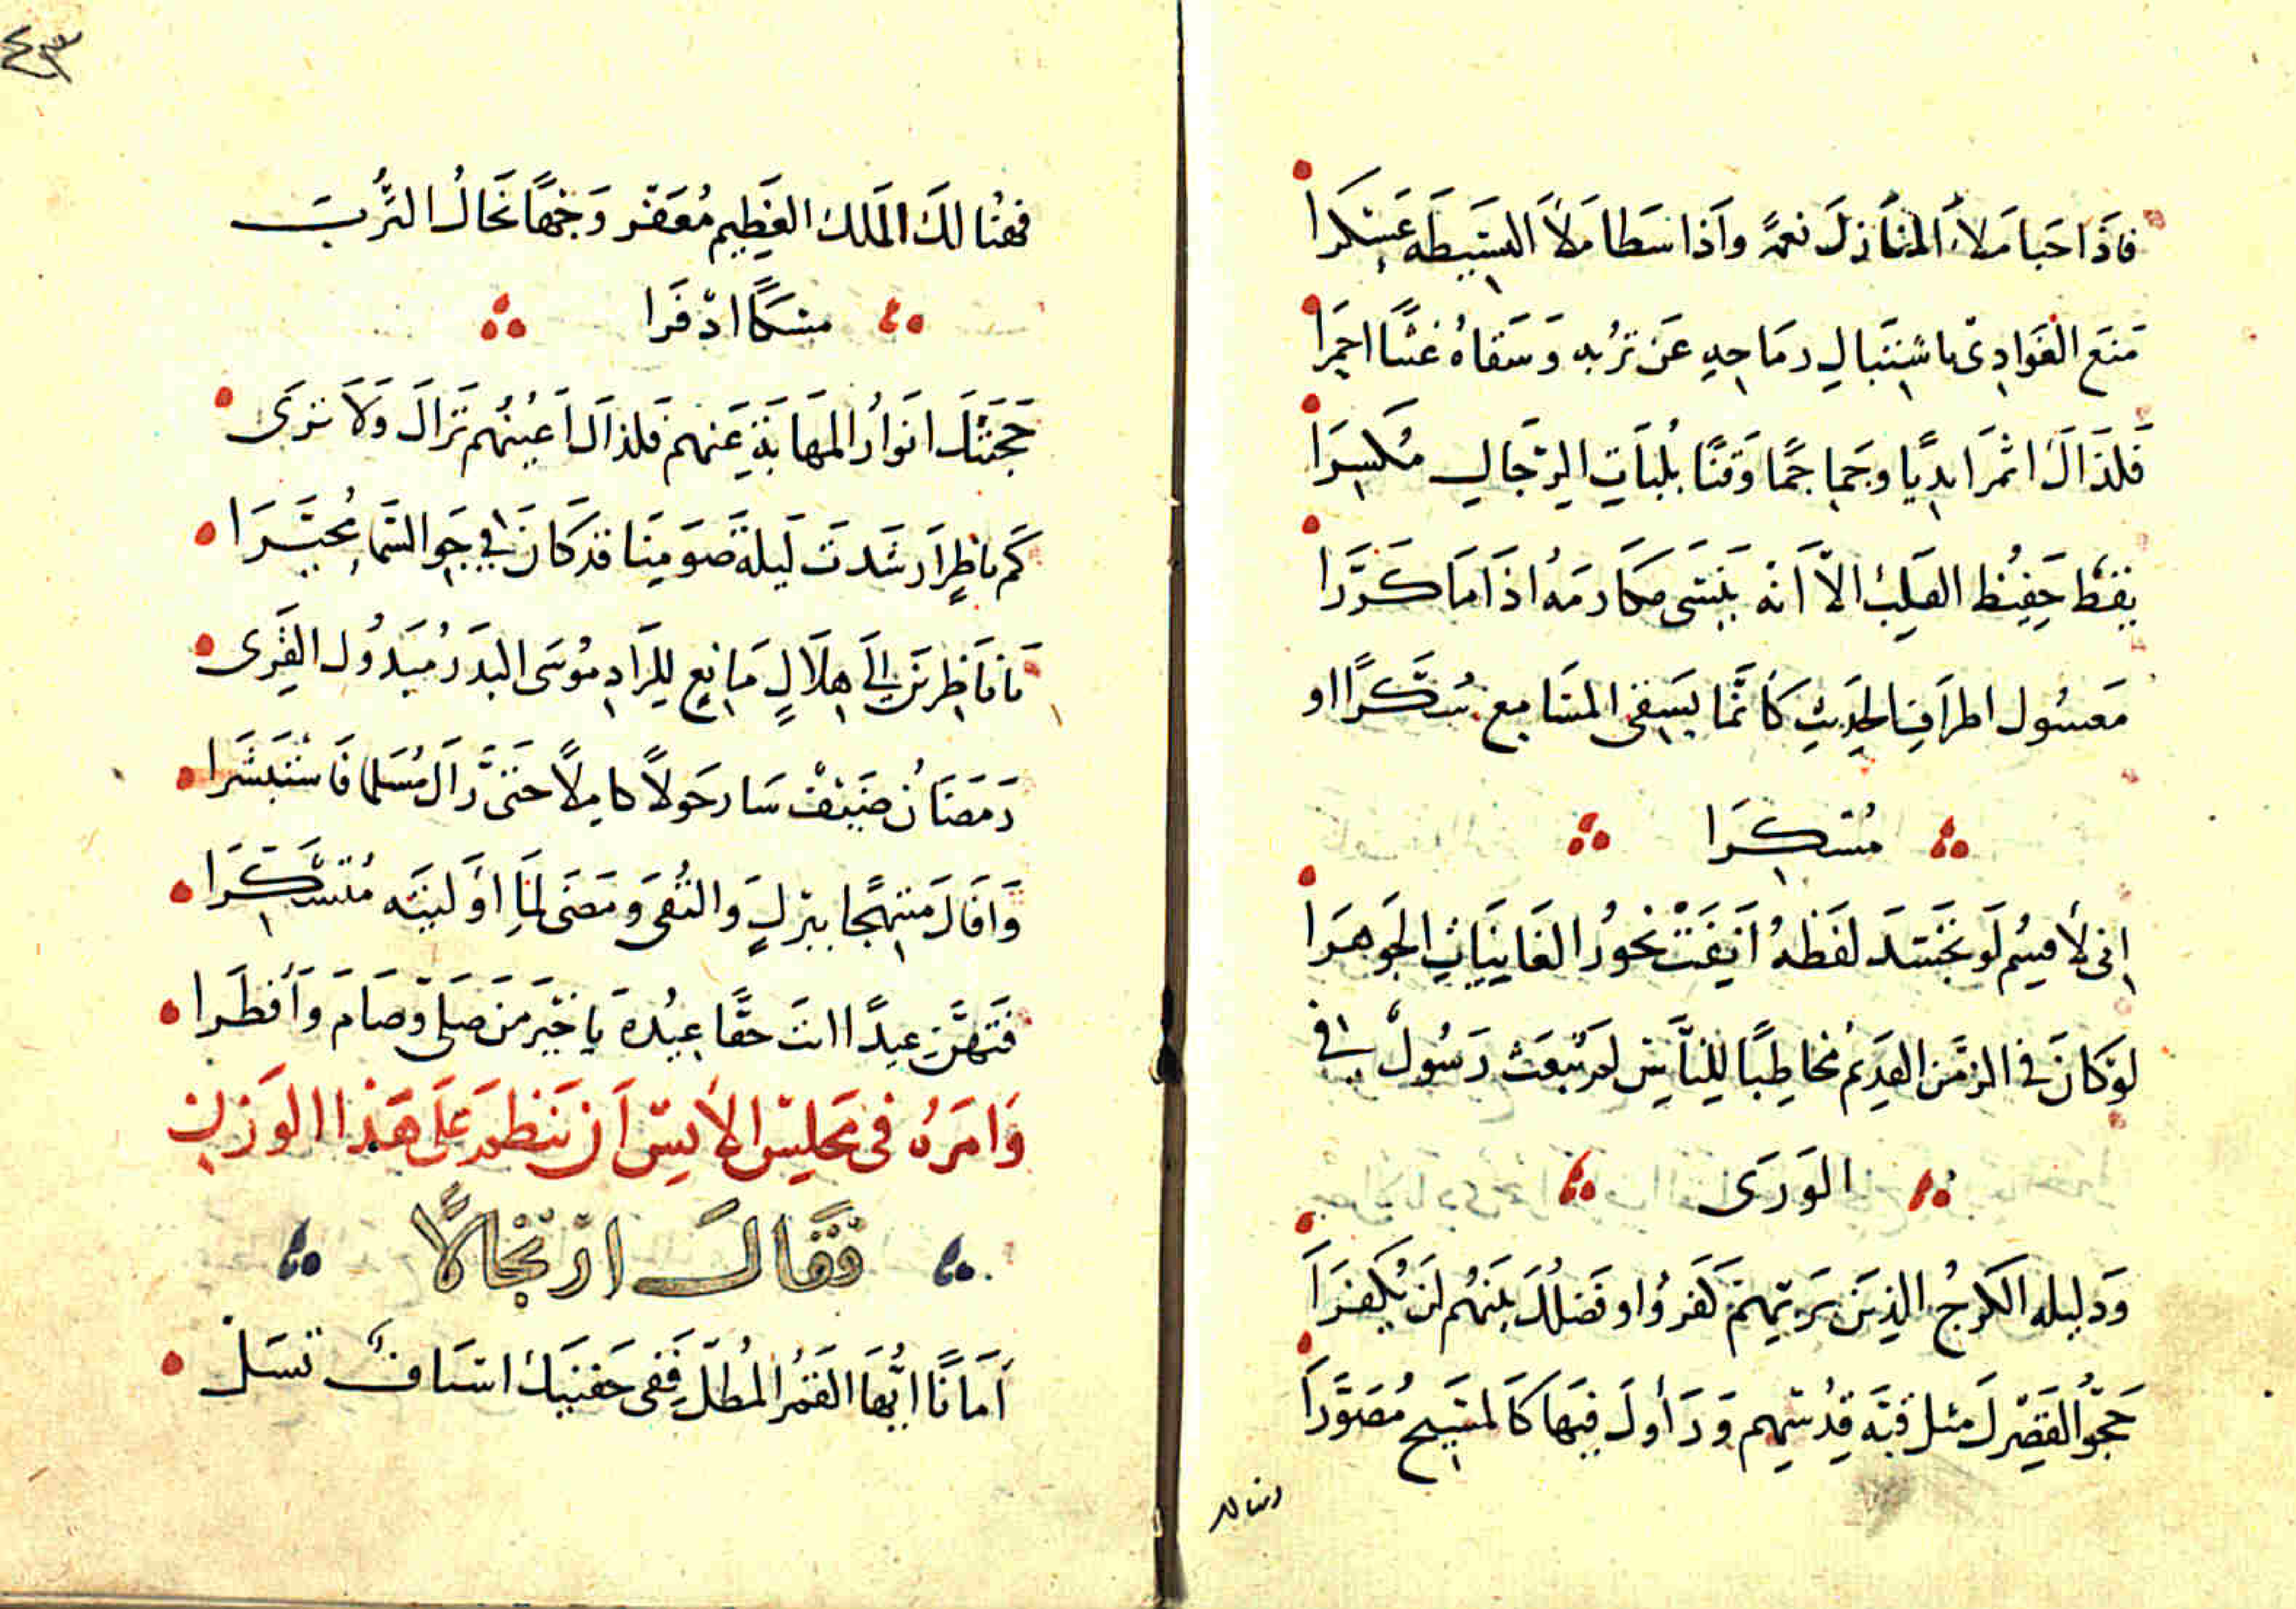 فاذا حبا ملأ المنازل نعمة واذا سطا ملأ البسيطه عسكرا
منع الغوادى باشتبال دماحه عن تربه وسقاه غيثا احمرا
فلذاك اثمر ايديا وجماجما وقنا بلبات الرجال مكسرا
يقظ حفيظ القلب الا انه ينسى مكارمه اذا ما كررا
معسول اطراف الحديث كانما يسقى المسامع سكرا او
مسكرا
انى لأقسم لو تجسد لفظه انفت نحور الغانيات الجوهرا
لو كان فى الزمن القديم مخاطبا للناس لم تبعث رسول فى
الورى
ودليله الكرج الذين بريهم كفروا وفضلك بينهم لن يكفرا
حجوا لقصرك مثل قبة قدسهم ورأوك فيها كالمسيح مصورا
وهنالك
٤٣
فهنالك الملك العظيم معفر وجها تخال الترب
مسكا اذفرا
حجبتك انوار المهابة عنهم فلذاك اعينهم تراك ولا ترى
كم ناظر ارشدت ليلة صومنا قد كان فى جو السماء محيرا
ما ناظر من الى هلال مانع للراد موسى البدر مبدول القرى
رمضان ضيف سار حولا كاملا حتى رآك مسلما فاستبشرا
وافاك مبتهجا ببرك والتقى ومضى لما اوليته متشكرا
فتهن عيدا انت حقا عيده يا خير من صلى وصام وأفطرا
وامره فى مجلس الانس ان ينظم على هذا الوزن
فقال ارتجالا
أمانا ايها القمر المطل ففى جفنيك اسياف تسل